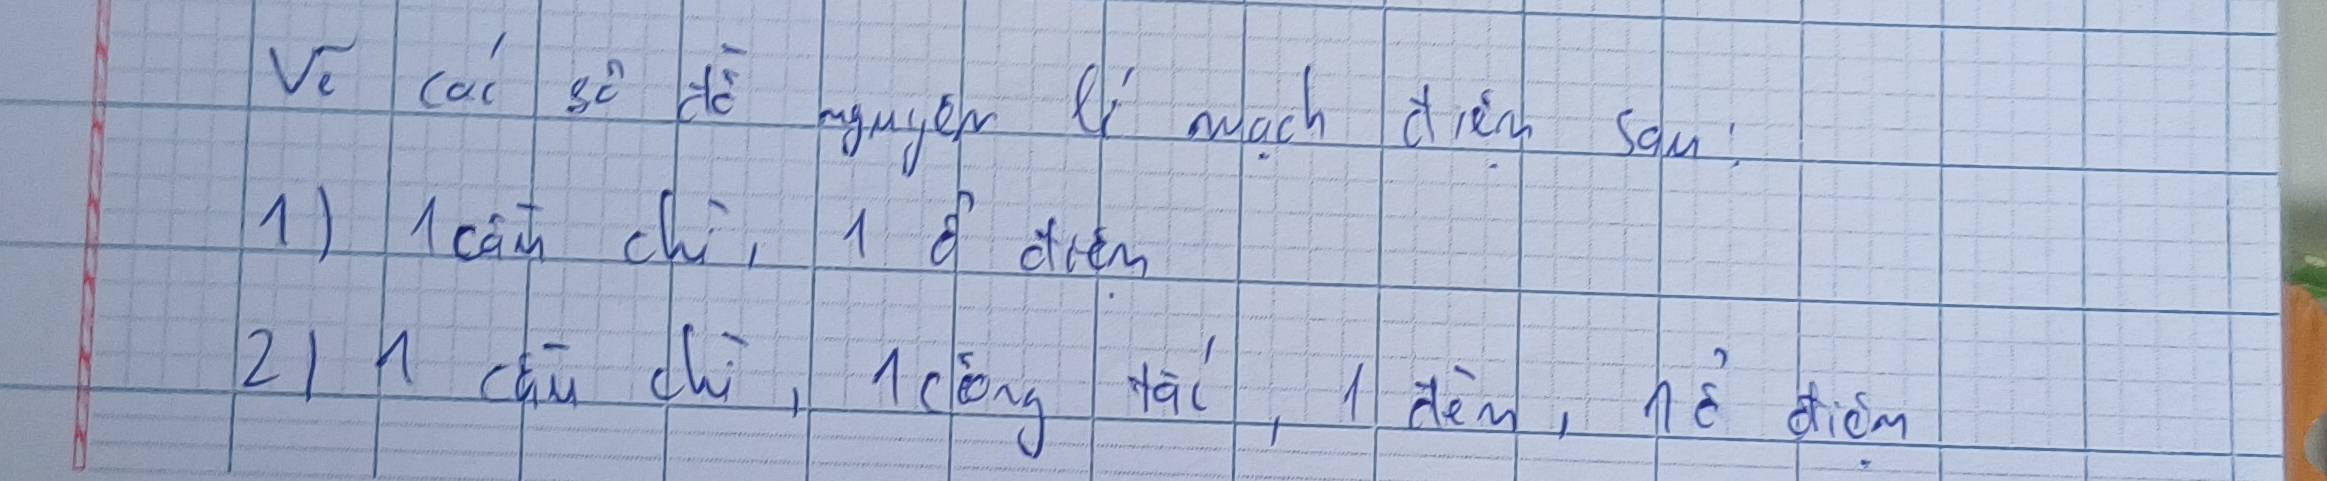 Vẽ các sơ đồ nguyên lí mạch điện sau:
1) 1 cầu chì, 1 ổ điện
2) 1 cầu chì, 1 công tắc, 1 đèn, 1 ổ điện